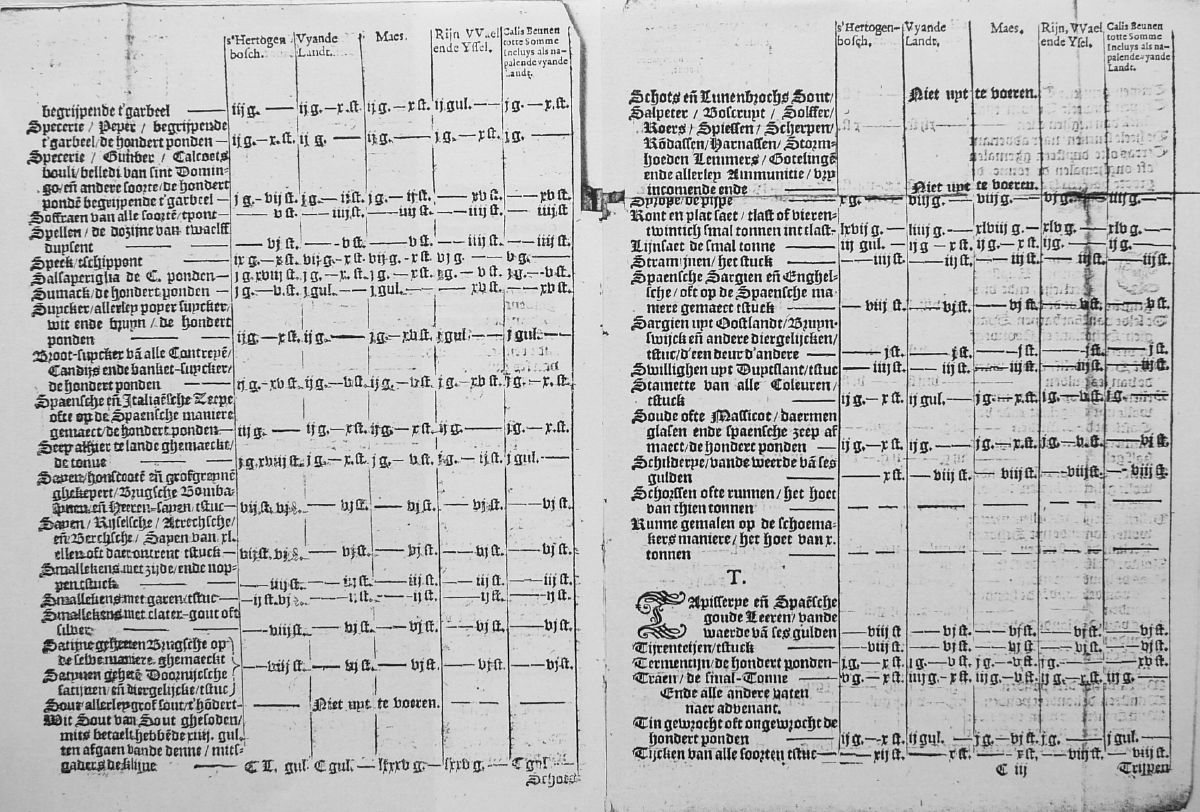 s'Hertogen bosch. Vyande Landt. Maes. Rijn VVael ende Yssel. Calis Beunen totte Somme Incluys als napalende vyande Landt.
begrijpende t'garbeel — iij g. — ij g. — x.st. ij g. — x.st. ij gul. — j g. — x.st.
Specerie / Peper / begrijpende
t'garbeel/de hondert ponden — ij g. — x.st. ij g. — j g. — x st. j g.
Specerie / Gimber / Calcoets
bouli/belledi van sint Domin-
go/en andere soorte/de hondert
pondē begrijpende t'garbeel — j g. — vij st. j g. — ij st. xv st. — xv st.
Soffraen van alle soortē/tpont — v st. — iiij st. — iiij st. — iiij st. — iiij st.
Spellen / de dozijne van twaelff
duysent — vj st. — v st. — v st. — iiij st. — iiij st.
Speck/tschippont — ix g. — x st. vij g. — x st. vij g. — x st. vj g. — v g.
Salsaperiglia de C. ponden — j g. xviij st. j g. — x st. j g. — x st. j g. — v st. j g. — v st.
Sumack/de hondert ponden — j g. — v.st. j gul. — j gul. — xv st. — xv st.
Suycker/allerley poyer suycker/
wit ende bruyn / de hondert
ponden — iij g. — x st. ij g. — j g. — xv st. j gul. — j gul.
Broot-suycker vā alle Contreyē/
Candijs ende banket-suycker/
de hondert ponden — ij g. — xv st. ij g. — v st. ij g. — v st. j g. — xv st. j g. — x. st.
Spaensche eñ Italiaēsche Zeepe
ofte op de Spaensche maniere
gemaect/de hondert ponden — iij g. — ij g. — x st. ij g. — x st. ij g. — j g. — x st.
Seep alhier te lande ghemaeckt/
de tonne — j g. xviij st. j g. — x st. j g. — v st. j g. — ij st. j gul.
Sayen/honscootē eñ grofgreynē
ghekepert/Brugsche Bomba-
eñ Heeren-sayen/tstuc — viij st. vj — vj st. — vj st. — vj st. — vj st.
Sayen / Rijselsche / Atrechsche/
eñ Berchsche / Sayen van xl.
ellen oft daer ontrent tstuck — viij st. vj — vj st. — vj st. — vj st. — vj st.
Smallekens met zijde/ende nop-
pen tstuck — iiij st. — iij st. — iij st. — iij st. — iij st.
Smallekens met garen/tstuc — ij st. vj — ij st. — ij st. — ij st. — ij st.
Smallekens met clater-gout oft
silver — viij st. — vj st. — vj st. — vj st. — vj st.
Satijne geheeten Brugsche op
de selve maniere ghemaeckt
Satynen gehetē Doornijcsche
satijnen / eñ diergelijcke/tstuc — viij st. — vj st. — vj st. — vj st. — vj st.
Sout/allerley grof sout/t'hōdert — Niet uyt te voeren.
Wit Sout van Sout ghesoden/
mits betaelt hebbēde gul.
ten afgaen vande denne / mits-
gaders de slijne — C L. gul. C gul. — lxxv g. — lxxv g. — C gul.
Schots
s'Hertogen-bosch. Vyande Landt. Maes. Rijn, VVael ende Yssel. Calis Beunen totte Somme Incluys als na-palende vyande Landt.
Schots eñ Lunenbrochs Sout/ Niet uyt te voeren.
Salpeter / Boscruyt / Solffer/
Roers / Spiessen / Scherpen/
Rōdassen/Harnassen / Storm-
hoeden Lemmers / Gotelingē
ende allerley Ammunitie / vry
incomende ende — Niet uyt te voeren.
Syrope/de pijpe — x g. — viij g. — viij g. — vij g. — iiij g.
Ront en plat saet / tlast of vieren-
twintich smal tonnen int last — lxvij g. — liiij g. — xlviij g. — xlv g. — xlv g.
Lijnsaet de smal tonne — iij gul. — ij g — x st. ij g. — x st. ij g. — ij g.
Stramijnen/het stuck — iiij st. — iiij st. — iiij st. — iiij st. — iiij st.
Spaensche Sargien eñ Enghel-
sche / oft op de Spaensche ma-
niere gemaect tstuck — viij st. — vj st. — vj st. — v st. — v st.
Sargien uyt Oostlandt/Bruyn-
swijck eñ andere diergelijcken/
tstuc/d'een deur d'andere — j st. — j st. — j st. — j st. — j st.
Swillighen uyt Duytslant/tstuc — iiij st. — iiij st. — iiij st. — iiij st. — iiij st.
Stamette van alle Coleuren/
tstuck — ij g. — x st. ij gul. — j g. — x st. j g. — x st. j g.
Soude ofte Massicot / daermen
glasen ende spaensche zeep af
maect/de hondert ponden — ij g. — x st. ij g. — j g. — x st. j g. — v st. — vj st.
Schilderye/vande weerde vā ses
gulden — x st. — viij st. — viij st. — viij st. — viij st.
Schorssen ofte runnen / het hoet
van thien tonnen — — — — —
Runne gemalen op de schoema-
kers maniere / het hoet van x.
tonnen — — — — —
T.
TApisserye eñ Spaēsche
goude Leeren/vande
waerde vā ses gulden — viij st — vj st. — vj st. — vj st. — vj st.
Tijrenteijen/tstuck — viij st. — vj st. — vj st. — vj st. — vj st.
Termentijn/de hondert ponden — j g. — x st. j g. — v st. j g. — v st. j g. — xv st.
Traen / de smal-Tonne — v g. — x st. iiij g. — x st. iij g. — v st. iij g. — iij g.
Ende alle andere vaten
naer advenant.
Tin gewrocht oft ongewrocht de
hondert ponden — ij g. — x st. ij gul. — j g. — x st. j g. — j gul.
Tijcken van alle soorten tstuc — xij st. — x st. — x st. — viij st. — vij st.
C iij Trijpen